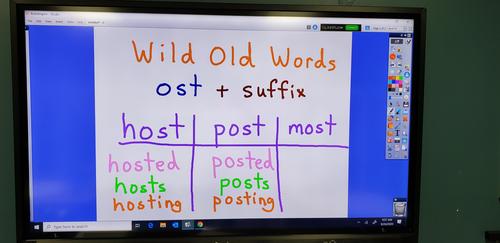 Wild Old Words
ost + suffix
host post most
hosted posted
hosts posts
hosting posting